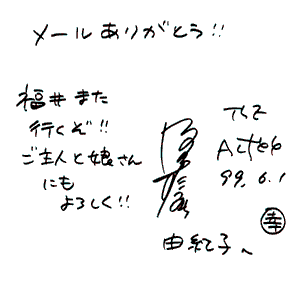 メールありがとう!!
福井また
行くぞ!!
ご主人と娘さん
にも
よろしく!!
THE
99.6.1
幸
由紀子へ